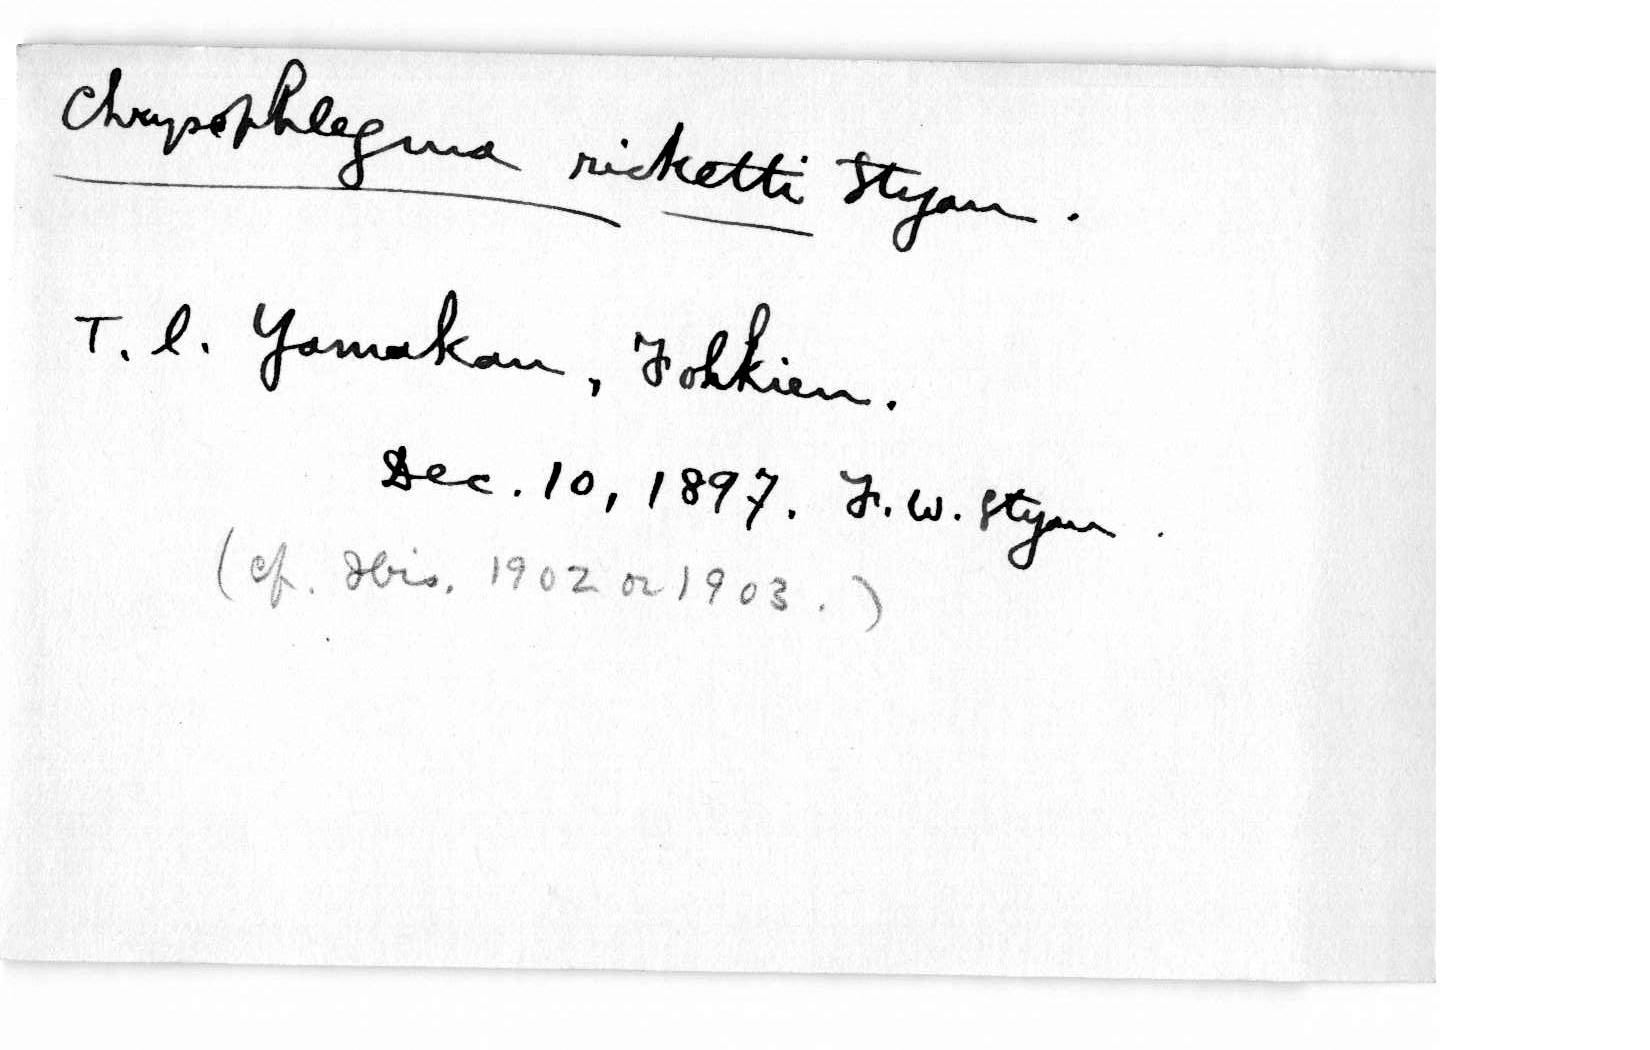 Chrysophlegma ricketti Styan.
T. l. Yamakan, Fohkien.
Dec. 10, 1897. F. W. Styan.
(cf. Ibis. 1902 or 1903.)